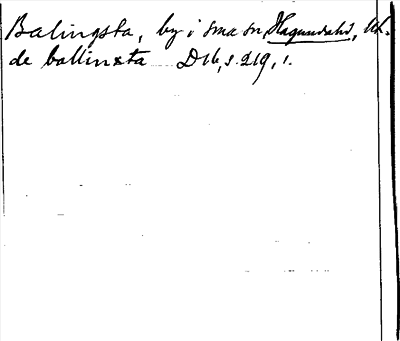 Balingsta, by i sma sn, Hagundahd, Ul.
de ballinsta D16, s. 219, 1.